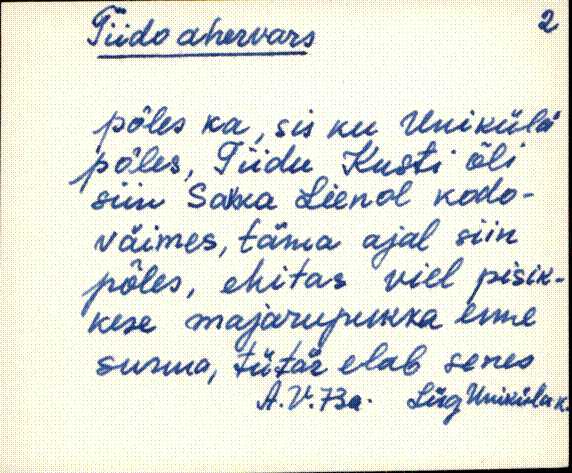 2
Tiido ahervars
põles ka, sis ku Uniküla
põles, Tiidu Kusti õli
siin Sakka Lienol kodo-
väimes, täma ajal siin
põles, ehitas viel pisik-
kese majarupukka enne
surma, tütär elab senes
A.V. 73a. Lüg Uniküla k.